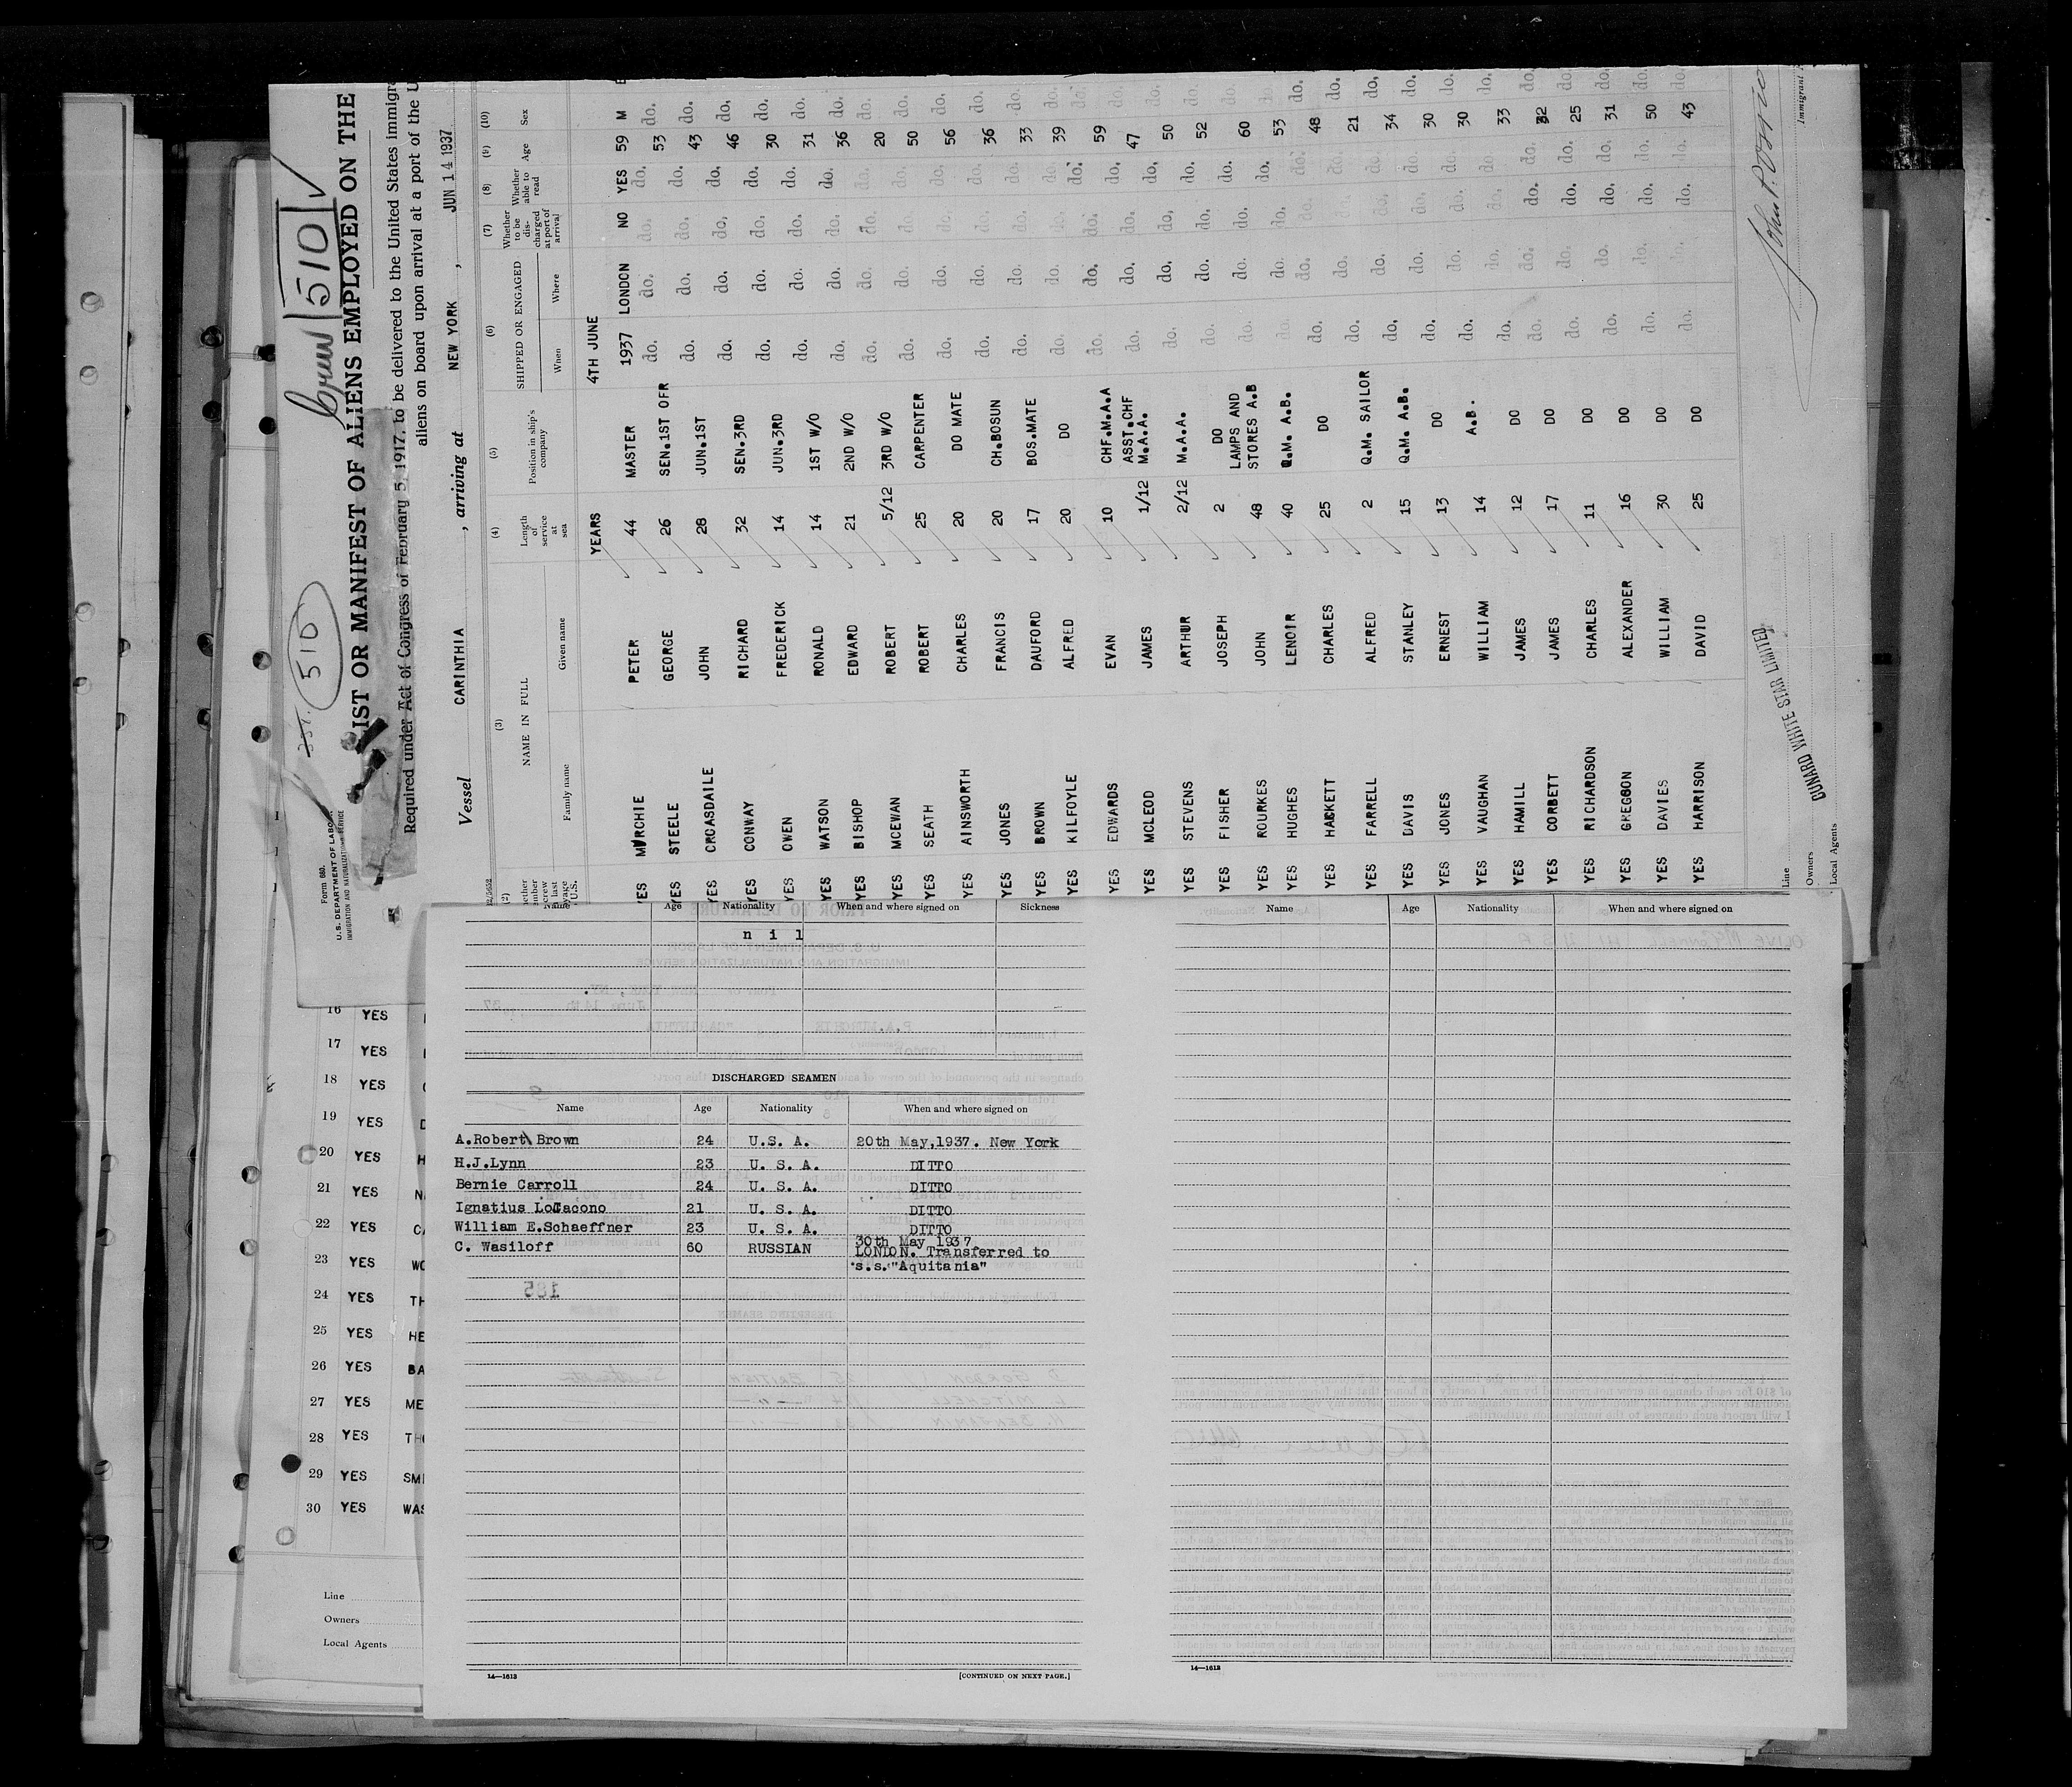 Form 680.
U.S. DEPARTMENT OF LABOR
IMMIGRATION AND NATURALIZATION SERVICE
510
Crew 510
LIST OR MANIFEST OF ALIENS EMPLOYED ON THE
Required under Act of Congress of February 5, 1917, to be delivered to the United States immigra
aliens on board upon arrival at a port of the U
Vessel CARINTHIA , arriving at NEW YORK , JUN 14 1937
(2) (3) (4) (5) (6) (7) (8) (9) (10)
NAME IN FULL Length of service at sea Position in ship's company SHIPPED OR ENGAGED Whether to be discharged at port of arrival Whether able to read Age Sex
Family name Given name When Where
YEARS 4TH JUNE
YES MURCHIE PETER 44 MASTER 1937 LONDON NO YES 59 M
YES STEELE GEORGE 26 SEN.1ST OFR do. do. do. do. 53 do.
YES CROASDAILE JOHN 28 JUN.1ST do. do. do. do. 43 do.
YES CONWAY RICHARD 32 SEN.3RD do. do. do. do. 46 do.
YES OWEN FREDERICK 14 JUN.3RD do. do. do. do. 30 do.
YES WATSON RONALD 14 1ST W/O do. do. do. do. 31 do.
YES BISHOP EDWARD 21 2ND W/O do. do. do. do. 36 do.
YES MCEWAN ROBERT 5/12 3RD W/O do. do. do. do. 20 do.
YES SEATH ROBERT 25 CARPENTER do. do. do. do. 50 do.
YES AINSWORTH CHARLES 20 DO MATE do. do. do. do. 56 do.
YES JONES FRANCIS 20 CH.BOSUN do. do. do. do. 36 do.
YES BROWN DAUFORD 17 BOS.MATE do. do. do. do. 33 do.
YES KILFOYLE ALFRED 20 DO do. do. do. do. 39 do.
YES EDWARDS EVAN 10 CHF.M.A.A do. do. do. do. 59 do.
YES MCLEOD JAMES 1/12 ASST.CHF M.A.A. do. do. do. do. 47 do.
YES STEVENS ARTHUR 2/12 M.A.A. do. do. do. do. 50 do.
YES FISHER JOSEPH 2 DO do. do. do. do. 52 do.
YES ROURKES JOHN 48 LAMPS AND STORES A.B do. do. do. do. 60 do.
YES HUGHES LENOIR 40 Q.M. A.B. do. do. do. do. 53 do.
YES HACKETT CHARLES 25 DO do. do. do. do. 48 do.
YES FARRELL ALFRED 2 Q.M. SAILOR do. do. do. do. 21 do.
YES DAVIS STANLEY 15 Q.M. A.B. do. do. do. do. 34 do.
YES JONES ERNEST 13 DO do. do. do. do. 30 do.
YES VAUGHAN WILLIAM 14 A.B. do. do. do. do. 30 do.
YES HAMILL JAMES 12 DO do. do. do. do. 33 do.
YES CORBETT JAMES 17 DO do. do. do. do. 32 do.
YES RICHARDSON CHARLES 11 DO do. do. do. do. 25 do.
YES GREGSON ALEXANDER 16 DO do. do. do. do. 31 do.
YES DAVIES WILLIAM 30 DO do. do. do. do. 50 do.
YES HARRISON DAVID 25 DO do. do. do. do. 43 do.
Line
Owners
Local Agents
CUNARD WHITE STAR LIMITED
Immigrant
16 YES
17 YES
18 YES
19 YES
20 YES H
21 YES N
22 YES CA
23 YES WO
24 YES TH
25 YES HE
26 YES BA
27 YES ME
28 YES THO
29 YES SMI
30 YES WAS
Line
Owners
Local Agents
Age Nationality When and where signed on Sickness
n i l
DISCHARGED SEAMEN
Name Age Nationality When and where signed on
A.Robert Brown 24 U.S. A. 20th May,1937. New York
H.J.Lynn 23 U. S. A. DITTO
Bernie Carroll 24 U. S. A. DITTO
Ignatius LoJacono 21 U. S. A. DITTO
William E.Schaeffner 23 U. S. A. DITTO
C. Wasiloff 60 RUSSIAN 30th May 1937
LONDON. Transferred to
s.s."Aquitania"
14—1613 [CONTINUED ON NEXT PAGE.]
Name Age Nationality When and where signed on
14—1613